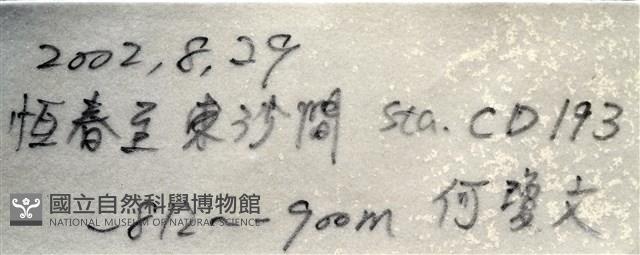 2002,8,29
恆春至東沙間 sta. CD193
~812~900m 何瓊文
國立自然科學博物館
NATIONAL MUSEUM OF NATURAL SCIENCE